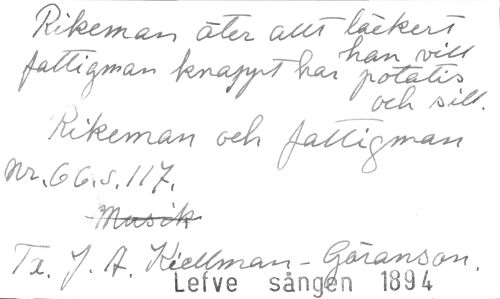 Rikeman äter allt läckert
han vill
fattigman knappt har potatis
och sill.
Rikeman och fattigman
Nr. 66. s. 117.
Musik
Tx. J. A. Kiellman-Göranson.
Lefve sången 1894